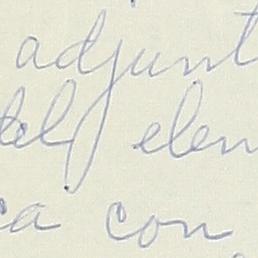 adjunt
del elem
ca con